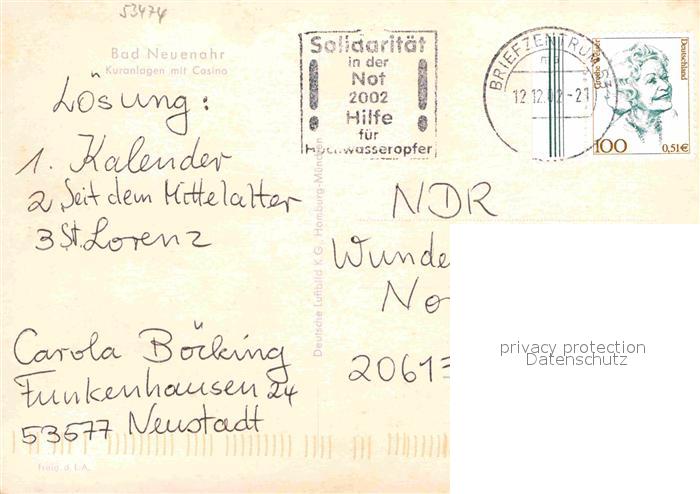 53474
Bad Neuenahr
Kuranlagen mit Casino
Lösung:
1. Kalender
2. Seit dem Mittelalter
3 St. Lorenz
Carola Böcking
Funkenhausen 24
53577 Neustadt
Freig. d. L.A.
Deutsche Luftbild K G, Hamburg-München
Solidarität
in der
Not
2002
Hilfe
für
Hochwasseropfer
BRIEFZENTRUM 53
12.12.02-21
Grethe Weiser
Deutschland
100 0,51€
NDR
Wunde
No
2061
privacy protection
Datenschutz